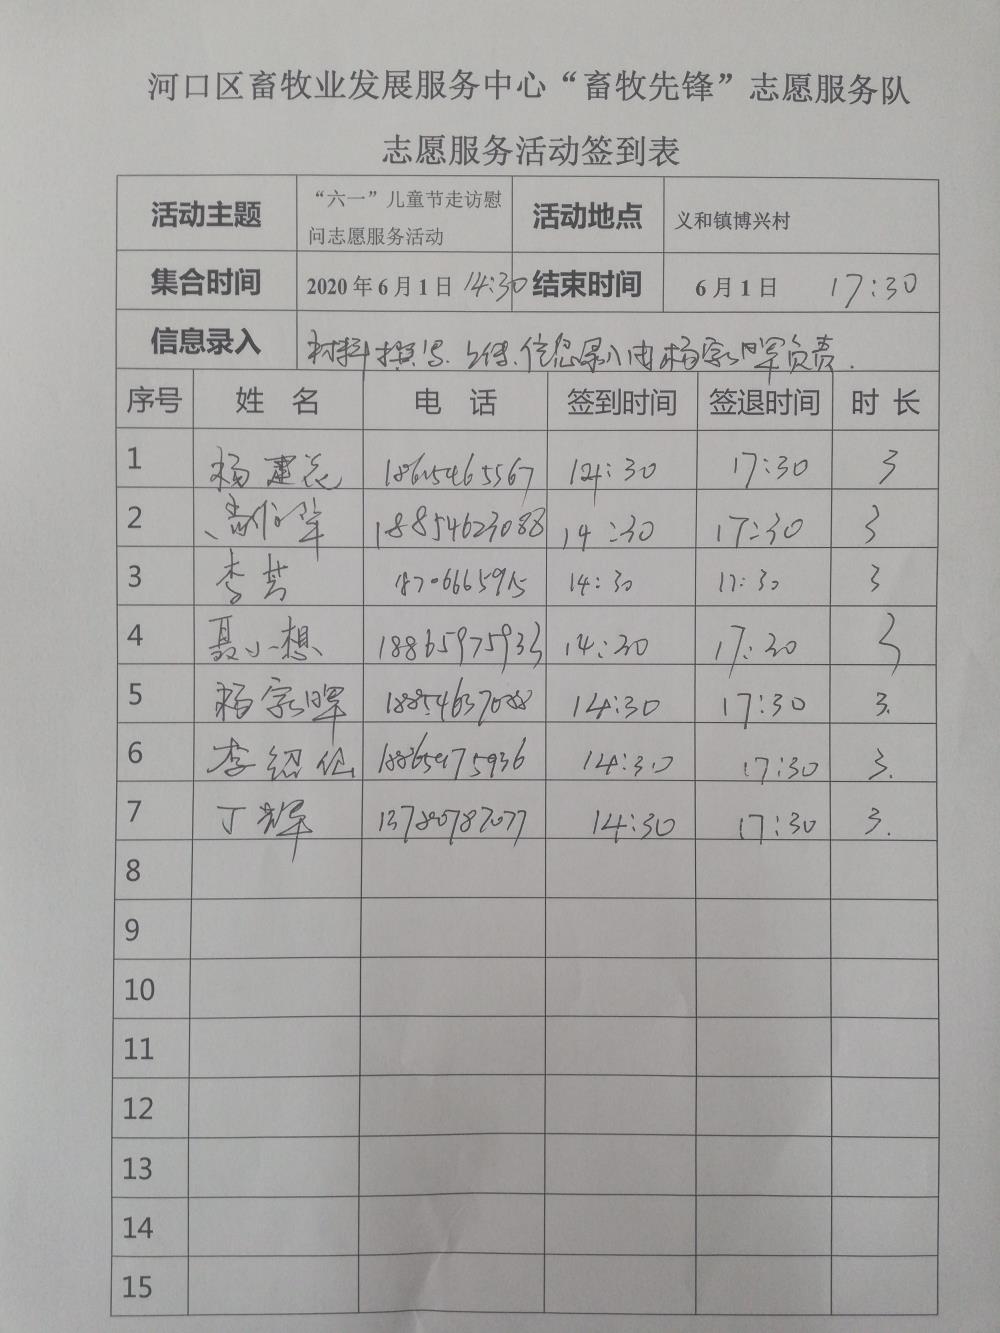 河口区畜牧业发展服务中心“畜牧先锋”志愿服务队
志愿服务活动签到表
活动主题 “六一”儿童节走访慰 活动地点 义和镇博兴村
问志愿服务活动
集合时间 2020年6月1日 14:30 结束时间 6月1日 17:30
信息录入 材料撰写、上传、信息录入由杨家晖负责.
序号 姓 名 电 话 签到时间 签退时间 时 长
1 杨建花 18615465567 14:30 17:30 3
2 18854623088 14:30 17:30 3
3 李芳 14:30 17:30 3
4 聂小想 18865975933 14:30 17:30 3
5 杨家晖 18854637088 14:30 17:30 3.
6 李绍仙 18865975936 14:30 17:30 3.
7 丁辉 14:30 17:30 3.
8
9
10
11
12
13
14
15